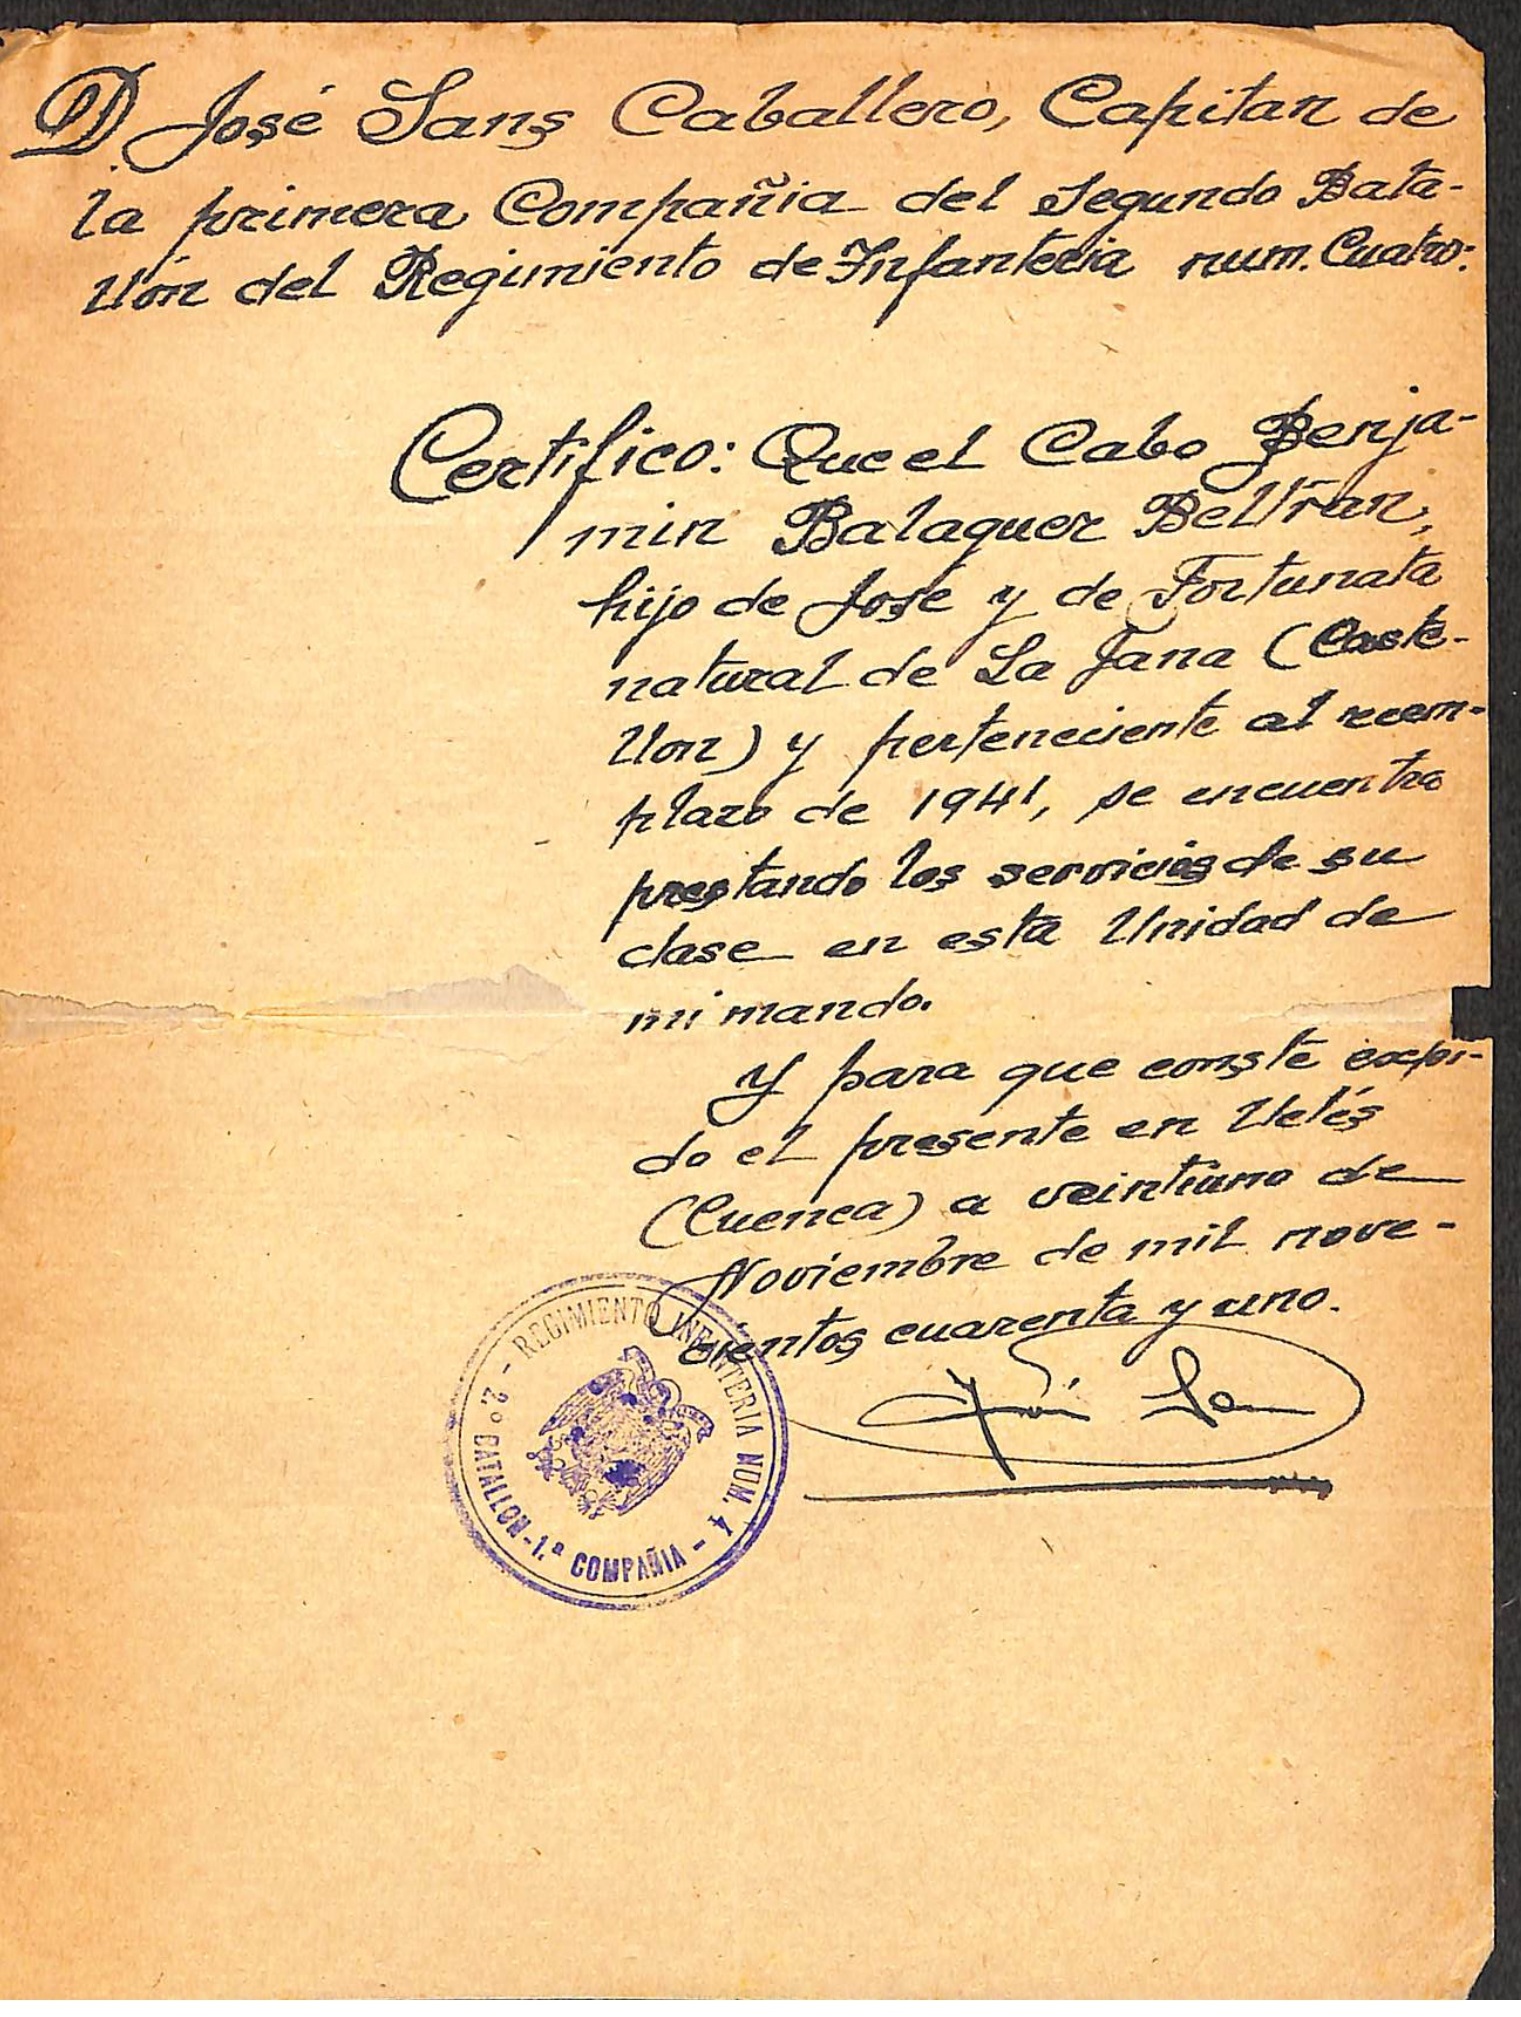 D. José Sans Caballero, Capitan de
la primera Compañia del Segundo Bata-
llón del Regimiento de Infanteria num. Cuatro:
Certifico: Que el Cabo Benja-
min Balaguer Beltran,
hijo de José y de Fortunata
natural de La Jana (Caste-
llon) y perteneciente al reem-
plazo de 1941, se encuentra
prestando los servicios de su
clase en esta Unidad de
mi mando.
Y para que conste expi-
do el presente en Uclés
(Cuenca) a veintiuno de
Noviembre de mil nove-
cientos cuarenta y uno.
- REGIMIENTO INFANTERIA NUM. 4 -
2.º BATALLON - 1.ª COMPAÑIA